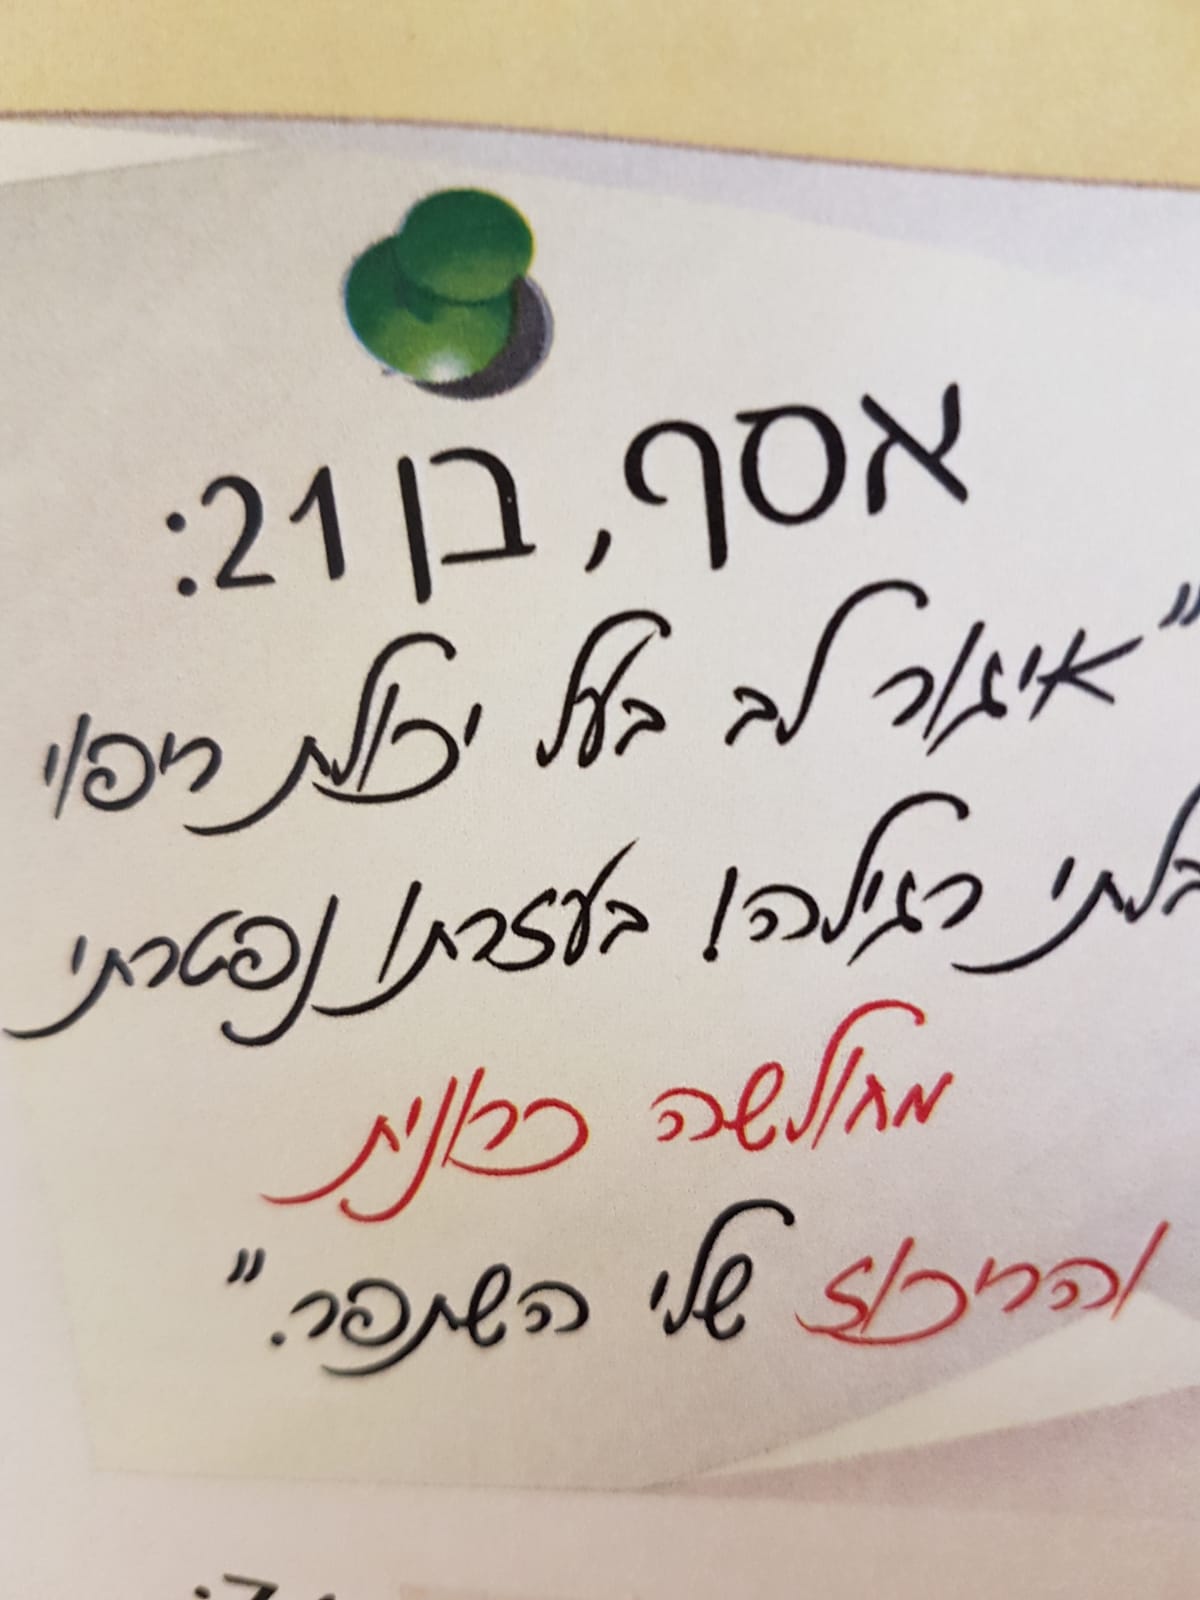 אסף, בן 21:
"איגור לב בעל יכולת ריפוי
בלתי רגילה! בעזרתו נפטרתי
מחולשה כרונית
והריכוז שלי השתפר."